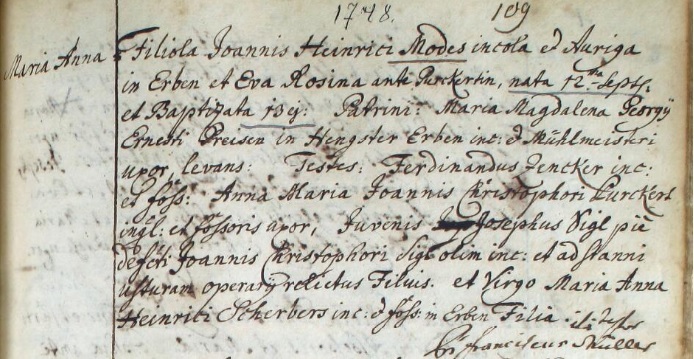 1748. 109
Maria Anna Filiola Joannis Heinrici Modes incola et Auriga
in Erben et Eva Rosina ante Purckertin, nata 12ma Septs:
et Baptizata 13 ej: Patrini: Maria Magdalena Georgÿ
Ernesti Preisen in Hengster Erben inc: et Mühlmeisteri
uxor, levans: Testes: Ferdinandus Zencker inc:
et foss: Anna Maria Joannis Christophori Purckert
inql: et fossoris uxor, Juvenis Josephus Sigl pie
defcti Joannis Christophori Sigl olim inc: et ad stanni
usturam operarÿ relictus Filius. et Virgo Maria Anna
Heinrici Scherbers inc: et foss: in Erben Filia.
Franciscus Müller